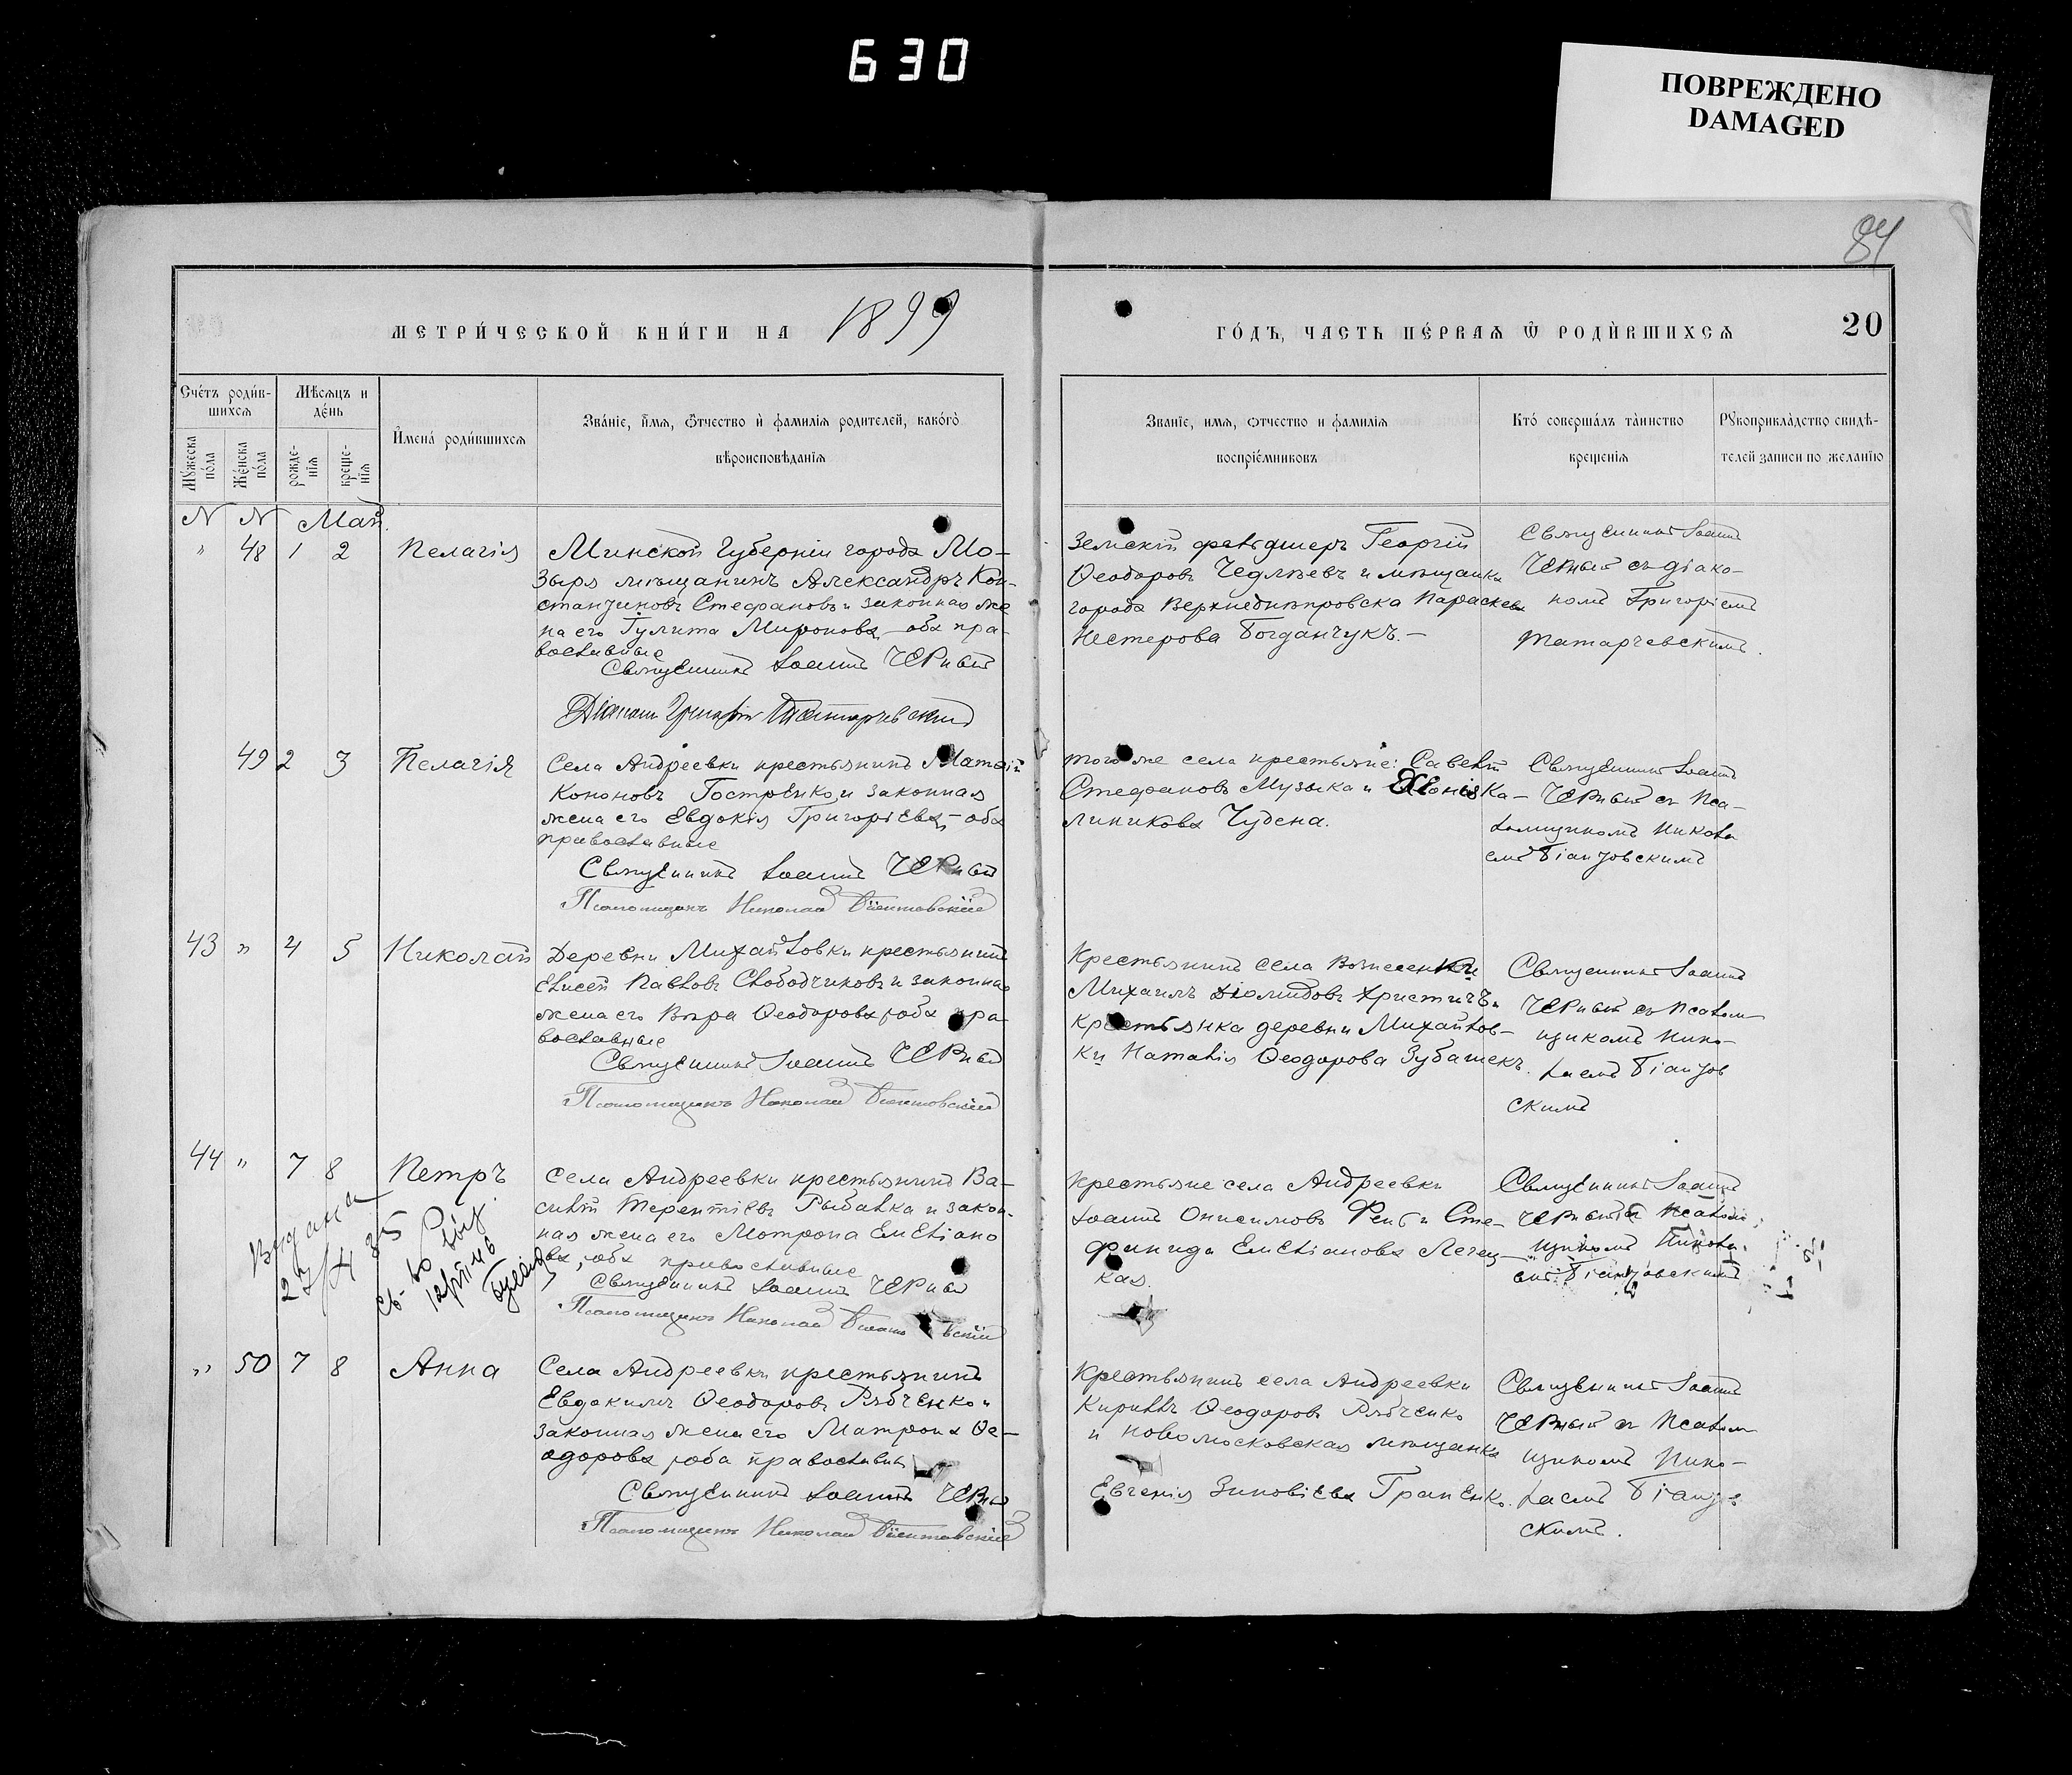 630
ПОВРЕЖДЕНО
DAMAGED
84
МЕТРИ́ЧЕСКОЙ КНИ́ГИ НА 1899
ГО́ДЪ, ЧАСТЬ ПЕ́РВАѦ Ѿ РОДИ́ВШИХСѦ
20
Сче́тъ роди́в-
шихсѧ
Мѣсѧцъ и
де́нь
Мꙋ́жеска
по́ла
Же́нска
по́ла
рожде-
нїѧ
креще-
нїѧ
И҆мена́ роди́вшихсѧ
Зва́нїе, и҆́мѧ, ѻ҆́тчество и҆ фамилїѧ родителей, како́гѡ
вѣроисповѣданїѧ
Званїе, имѧ, ѻтчество и фамилїѧ
воспрїе́мниковъ
Кто́ соверша́лъ та́инство
крещенїѧ
Рꙋкоприкла́дство свидѣ-
телей записи по желанїю
N N Май.
" 48 1 2 Пелагія
Минской Губерніи города Мо-
зыря мѣщанинъ Александръ Кон-
стантиновъ Стефановъ и законная же
на его Гулита Миронова, оба пра-
вославные
Священникъ Іоаннъ Черный
Діаконъ Григорій Татарчевскій
Земскій фельдшеръ Георгій
Ѳеодоровъ и мѣщанка
города Верхнеднѣпровска Параскева
Нестерова Богданчукъ.-
Священникъ Іоаннъ
Черный съ діако-
номъ Григоріемъ
Татарчевскимъ.
49 2 3 Пелагія
Села Андреевки крестьянинъ Матѳій
Кононовъ Гостренко, и законная
жена его Евдокія Григоріева, - оба
православные
Священникъ Іоаннъ Черный
Псаломщикъ Николай
того же села крестьяне: Савелій
Стефановъ Музыка и Ка-
линикова Чудена.
Священникъ Іоаннъ
Черный съ Пса-
ломщикомъ Никола
емъ
43 " 4 5 Николай
Деревни Михайловки крестьянинъ
Елисей Павловъ Слободчиковъ и законная
жена его Вѣра Ѳеодорова, оба пра-
вославные
Священникъ Іоаннъ Черный
Псаломщикъ Николай
Крестьянинъ села Вознесенки
Михаилъ Діомидовъ Христичъ и
крестьянка деревни Михайлов-
ки Наталія Ѳеодорова Зубашекъ.
Священникъ Іоаннъ
Черный съ Псалом-
щикомъ Нико-
лаемъ
скимъ
44 " 7 8 Петръ
Села Андреевки крестьянинъ Ва-
силій Терентіевъ Рыбалка и закон-
ная жена его Мотрона Емеліано
ва, оба православные
Священникъ Іоаннъ Черный
Псаломщикъ Николай
Выдана
Крестьяне села Андреевки
Іоаннъ Онисимовъ Репъ и Сте-
фанида Емеліанова Легец-
кая.
Священникъ Іоаннъ
Черный съ Псалом-
щикомъ Никола-
емъ
" 50 7 8 Анна
Села Андреевки крестьянинъ
Евдокимъ Ѳеодоровъ Рябченко и
законная жена его Матрона Ѳе-
одорова, оба православны
Священникъ Іоаннъ Черный
Псаломщикъ Николай
Крестьянинъ села Андреевки
Кириллъ Ѳеодоровъ Рябченко
и новомосковская мѣщанка
Евгенія Зиновіева Граненко.
Священникъ Іоаннъ
Черный съ Псалом-
щикомъ Нико-
лаемъ
скимъ.